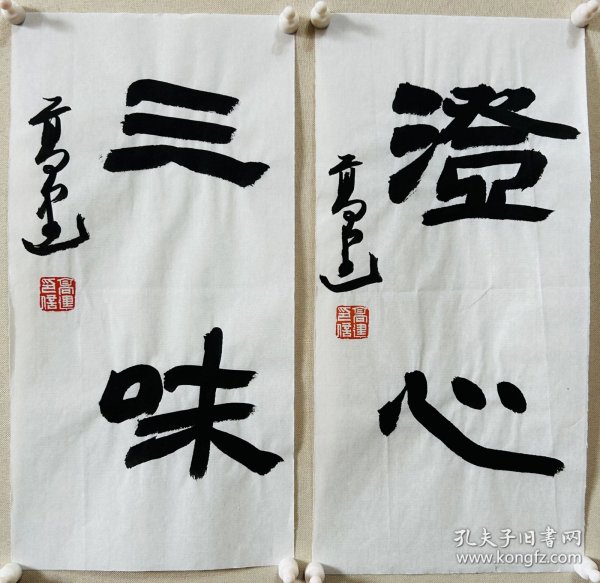 澄心
高建
高建印信
三味
高建
高建印信
孔夫子旧书网
www.kongfz.com